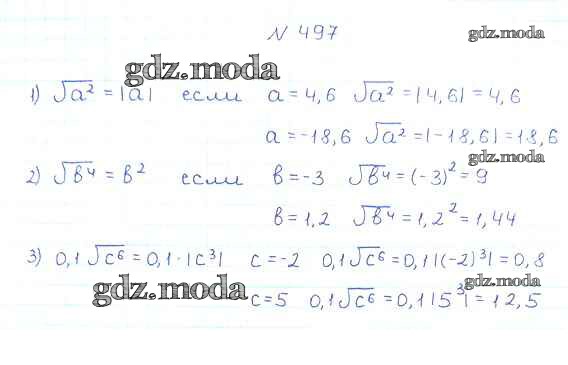 N 497
gdz.moda
gdz.moda
1) √a² = |a| если a = 4,6 √a² = |4,6| = 4,6
a = -18,6 √a² = |-18,6| = 18,6
gdz.moda
2) √b⁴ = b² если b = -3 √b⁴ = (-3)² = 9
b = 1,2 √b⁴ = 1,2² = 1,44
3) 0,1√c⁶ = 0,1·|c³| c = -2 0,1√c⁶ = 0,1|(-2)³| = 0,8
gdz.moda
gdz.moda
c = 5 0,1√c⁶ = 0,1|5³| = 12,5